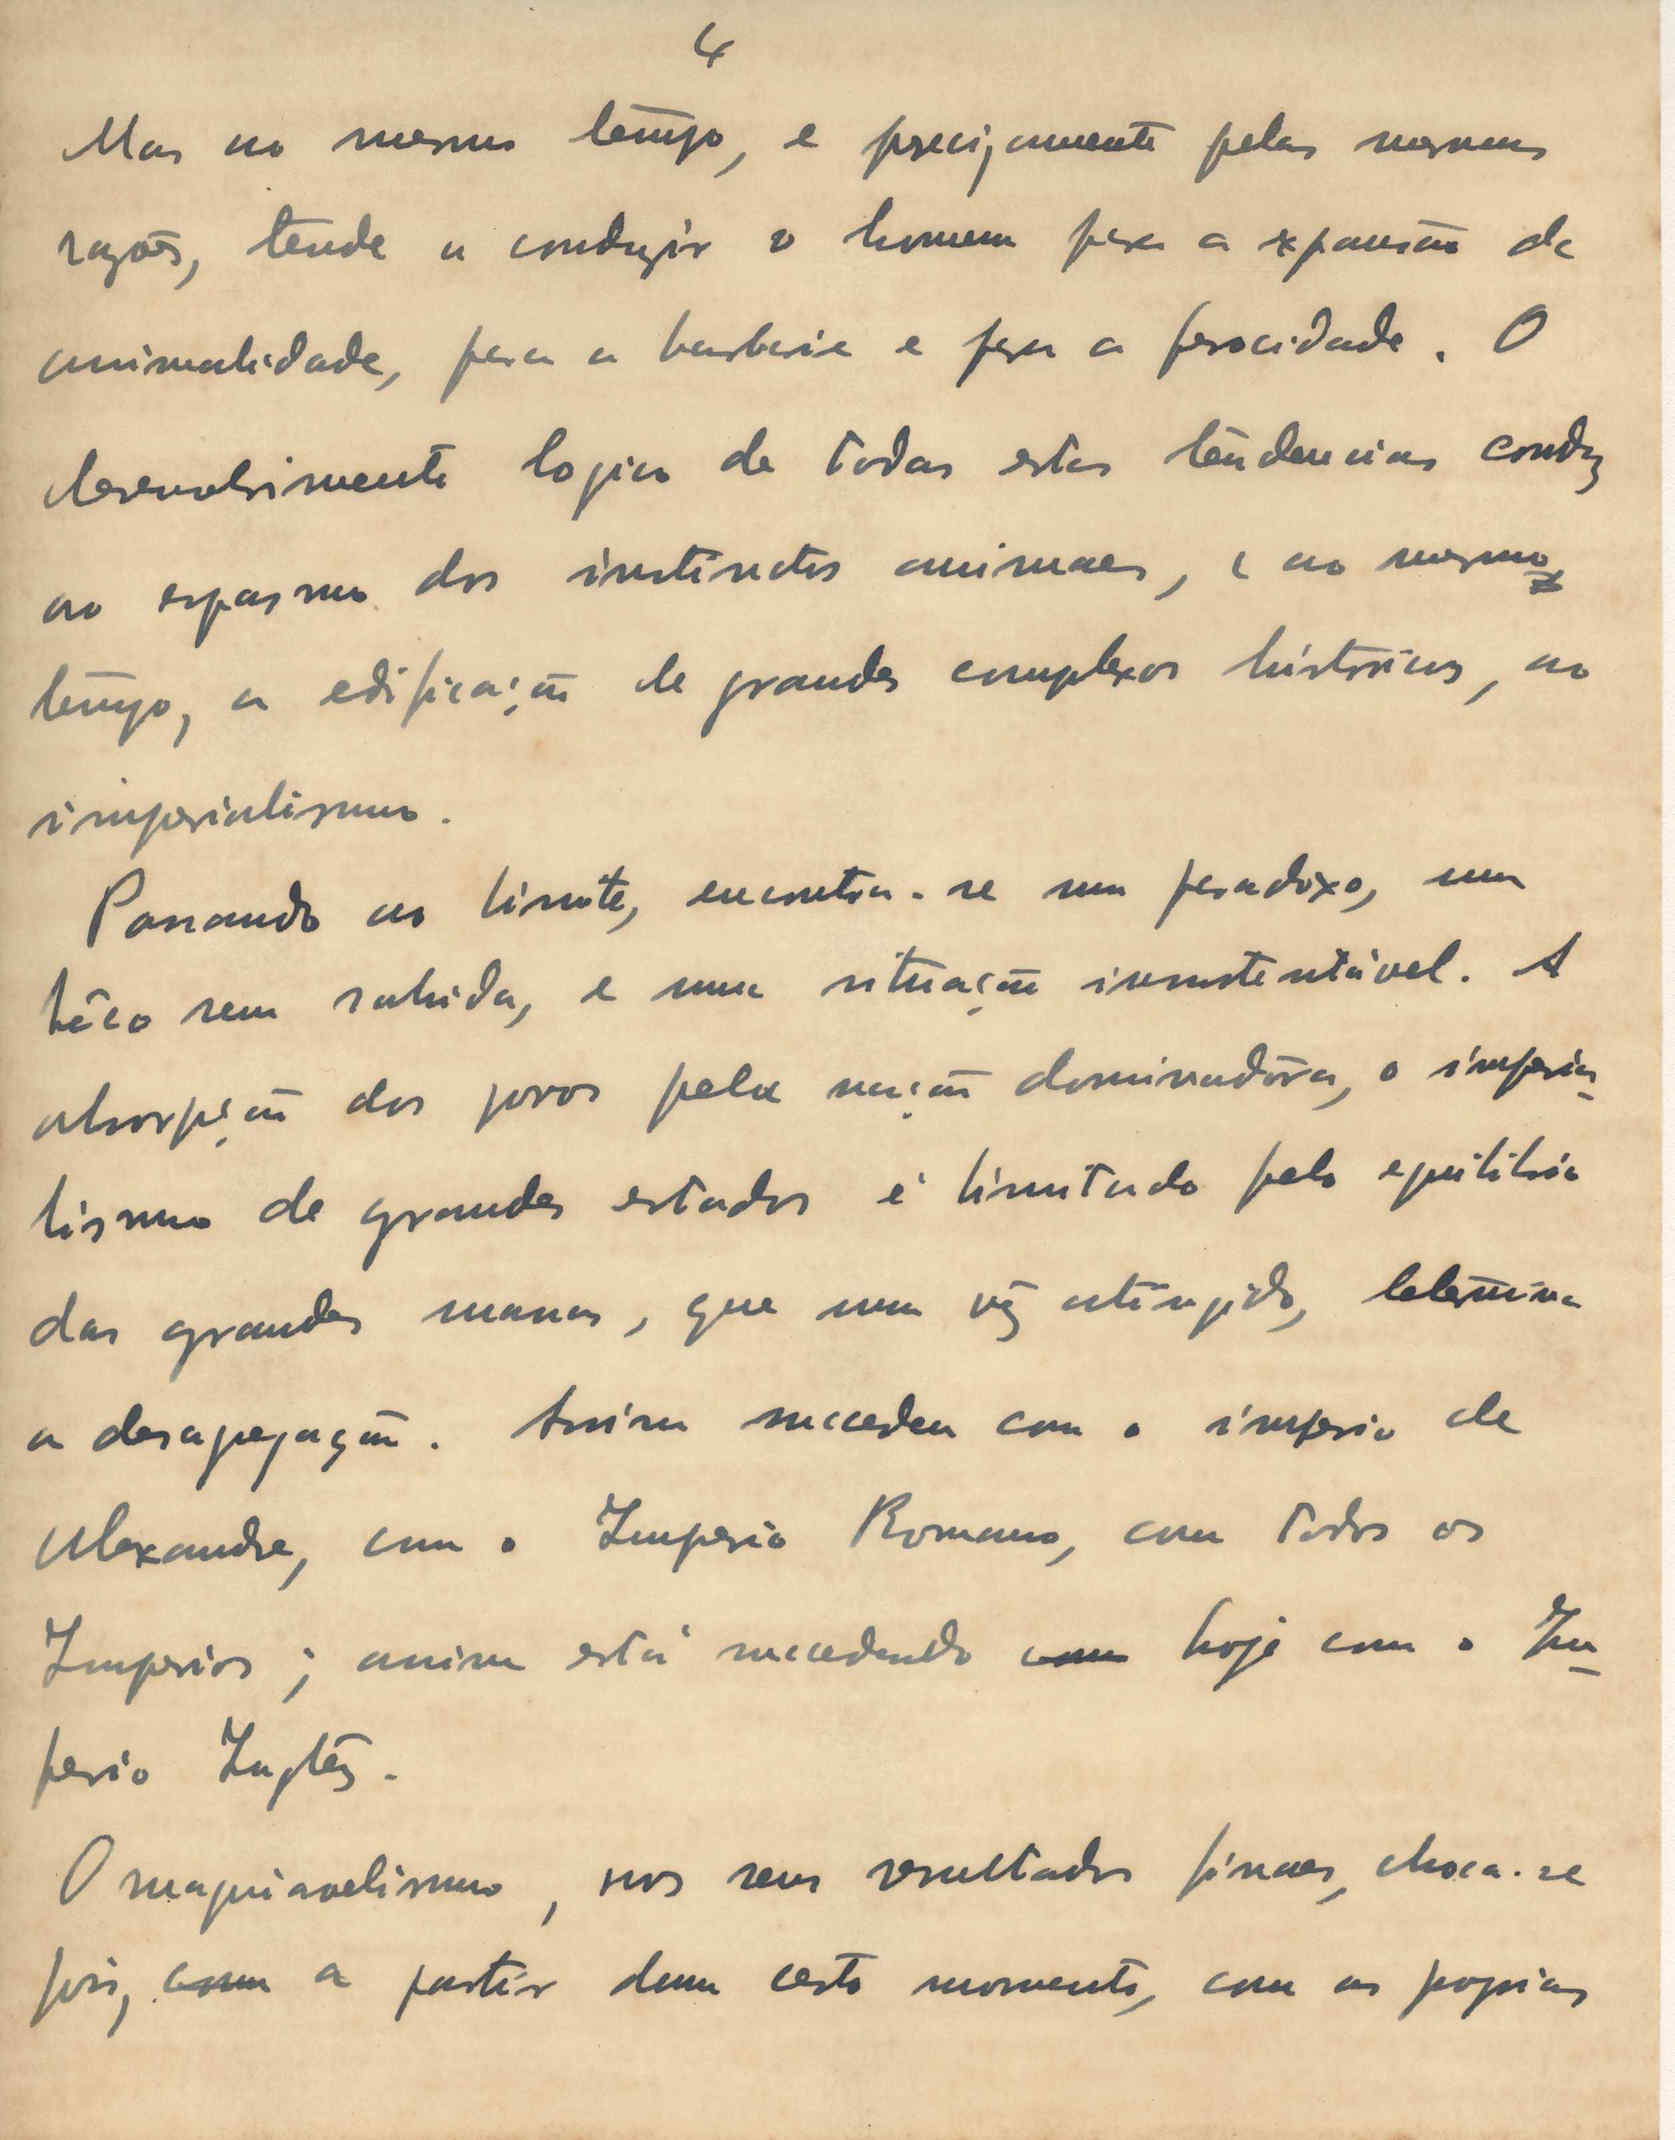 4
Mas ao mesmo tempo, e precisamente pelas mesmas
razões, tende a conduzir o homem para a expansão da
animalidade, para a barbarie e para a ferocidade. O
desenvolvimento logico de todas estas tendencias conduz
ao espasmo dos instinctos animaes, e ao mesmo
tempo, a edificação de grandes complexos históricos, ao
imperialismo.
Passando ao limite, encontra-se um paradoxo, um
bêco sem sahida, e uma situação insustentável. A
absorpção dos povos pela nação dominadôra, o imperia-
lismo de grandes estados é limitado pelo equilibrio
das grandes massas, que uma vez atingido, determina
a desagregação. Assim succedeu com o imperio de
Alexandre, com o Imperio Romano, com todos os
Imperios; assim está succedendo com hoje com o Im-
perio Inglêz.
O maquiavelismo, nos seus resultados finaes, choca-se
pois, com a partir dum certo momento, com as proprias